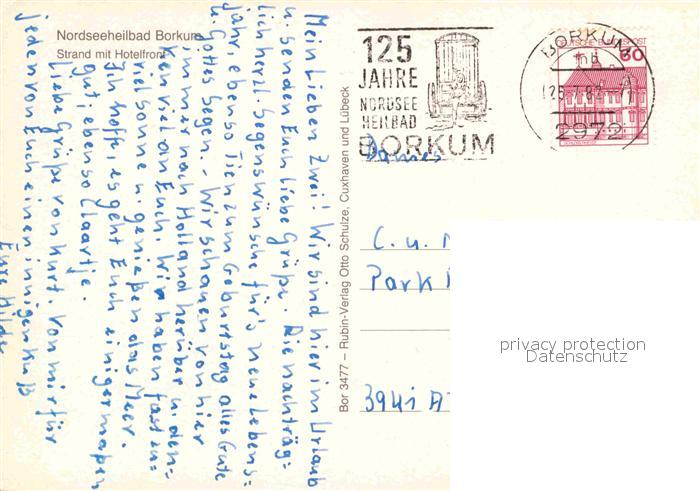 Nordseeheilbad Borkum
Strand mit Hotelfront
Mein Lieben Zwei! Wir sind hier im Urlaub
u. senden Euch liebe Grüße. Die nachträg=
lich herzl. Segenswünsche für's neue Lebens=
jahr, ebenso Tien zum Geburtstag alles Gute
u. Gottes Segen. – Wir schauen von hier
immer nach Holland herüber u. den=
ken viel an Euch. Wir haben fast zu=
viel Sonne u. genießen das Meer.
Ich hoffe, es geht Euch einigermaßen
gut, ebenso Claartje.
Liebe Grüße von Kurt. Von mir für
jeden von Euch einen innigen Kuß
Eure Hilde
Bor 3477 – Rubin-Verlag Otto Schulze, Cuxhaven und Lübeck
125
JAHRE
NORDSEE
HEILBAD
BORKUM
BORKUM
DEUTSCHE BUNDESPOST
60
2972
C. u.
Park
3941
privacy protection
Datenschutz